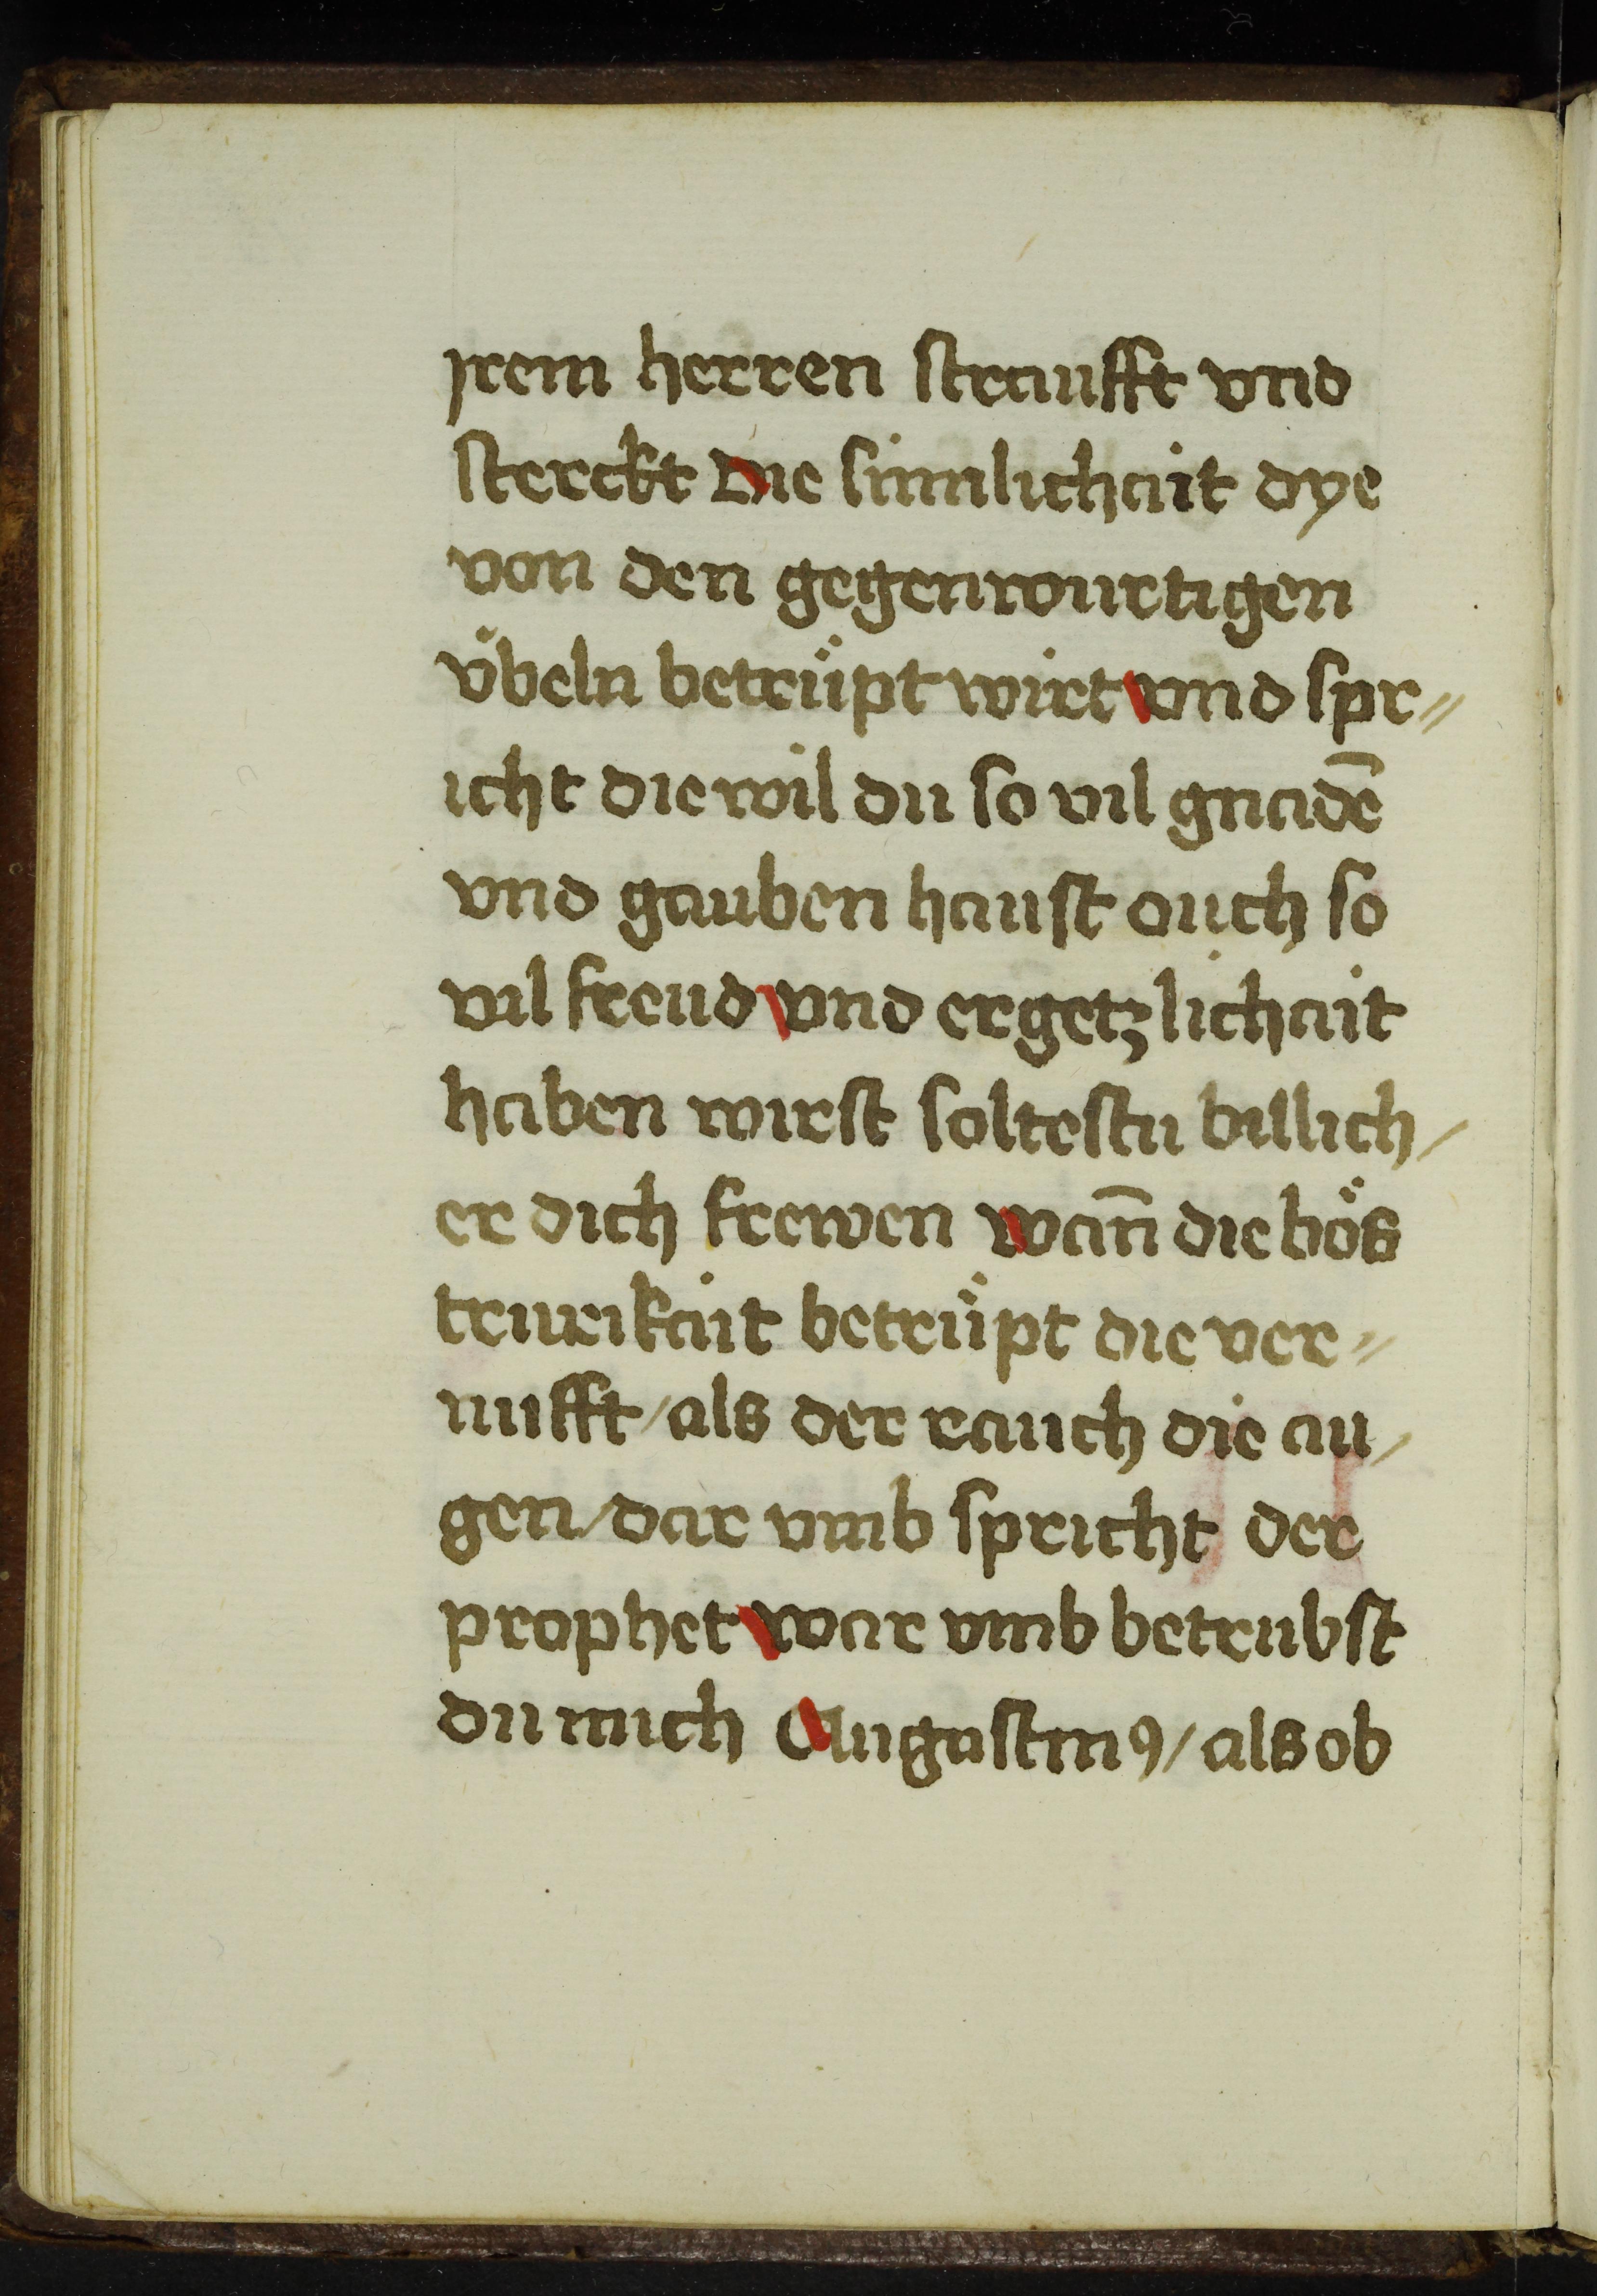 jrem herren straufft vnd
sterckt Die sinnlichait dye
von den gegenwurtigen
v̈beln betrüpt wirt vnd spr〃
icht die wil du so vil gnadē
vnd gauben haust ouch so
vil freud vnd ergetzlichait
haben wirst soltestu billich/
er dich frewen wan̄ die bös
trurikait betrüpt die ver〃
nufft / als der rauch die au/
gen / dar vmb spricht der
prophet war vmb betrubst
du mich Augustinꝰ / als ob